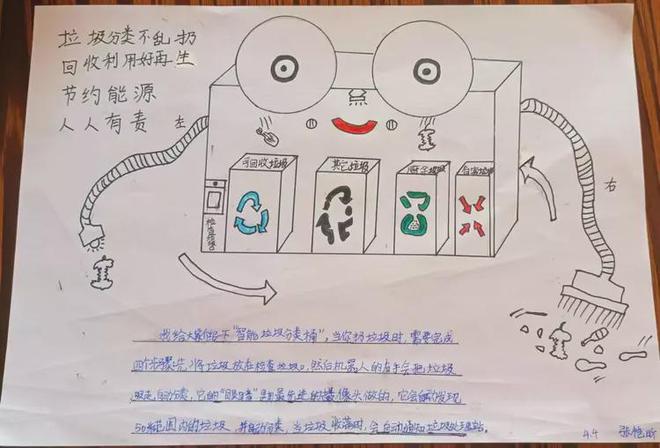 垃圾分类不乱扔
回收利用好再生
节约能源
人人有责
左
右
可回收垃圾
其它垃圾
厨余垃圾
有害垃圾
我给大家介绍一下“智能垃圾分类桶”，当你扔垃圾时，需要完成
四个步骤先将垃圾放在检查垃圾口，然后机器人的右手会把垃圾
吸走自动分类，它的“眼睛”是最先进的摄像头做的，它会发现
50米范围内的垃圾，并自动分类，当垃圾收满时，会自动通知垃圾处理站。
4.4 张恺昕